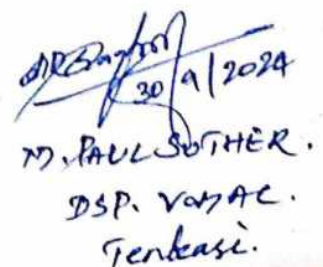 30/9/2024
M. PAUL SUTHER.
DSP. V&AC.
Tenkasi.